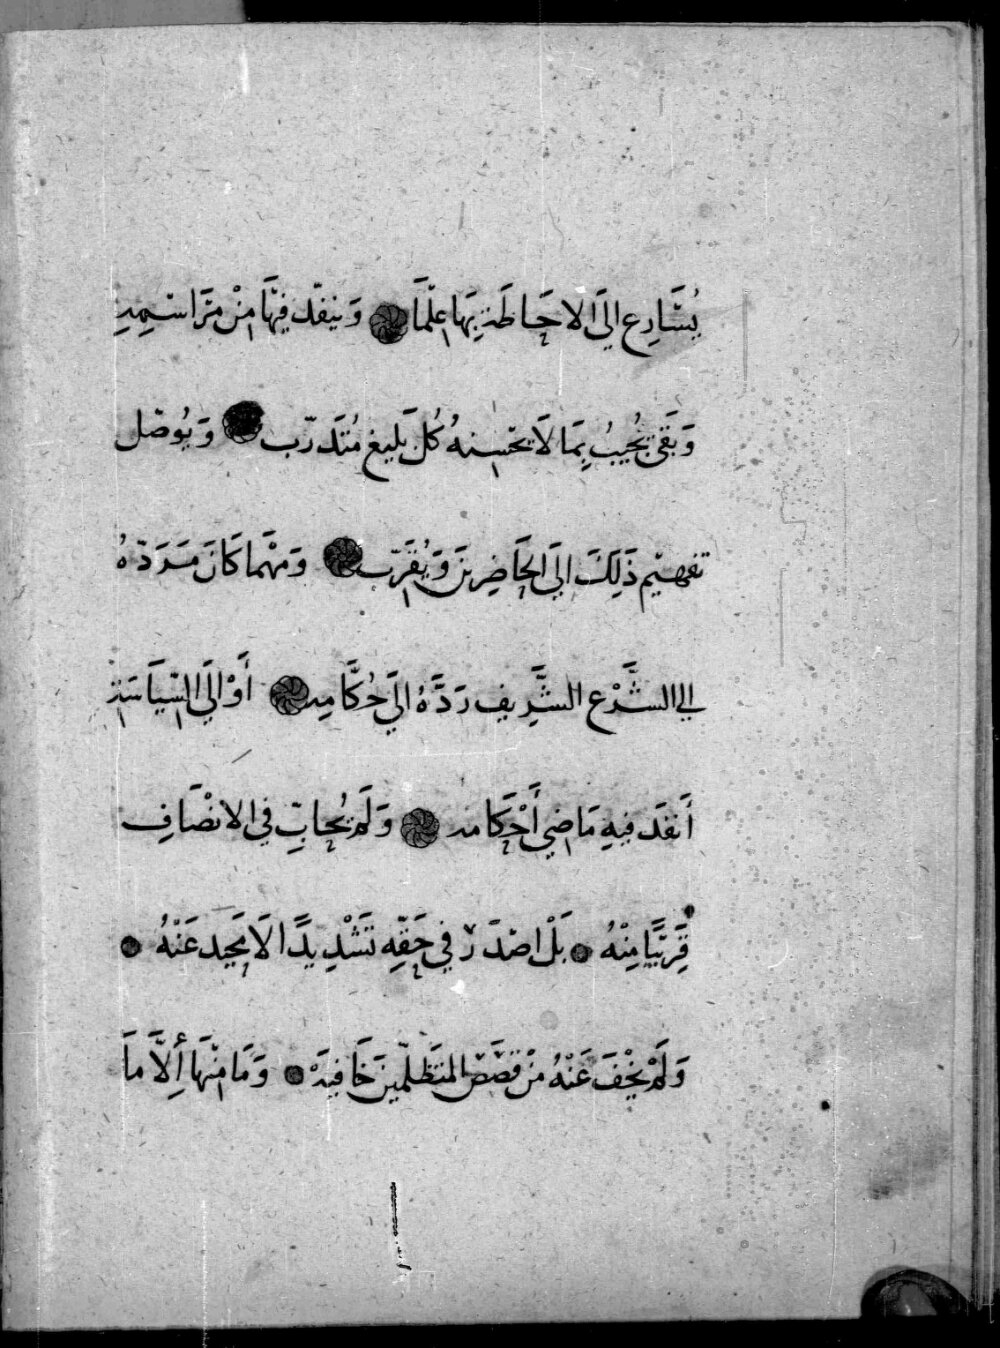 يُسَارِع إِلَى الاحَاطَة بِهَا عِلْمًا وَينفّد فِيهَا مِنْ مَرَاسِمِهِ
وَبَقَى يُجِيبُ بِمَا لَا يحْسِنهُ كُل بَلِيغ مُتَدَرّب وَيُوصّل
تفهِيم ذَلِكَ الِىَ الحَاضِرِينَ وَيُقَرّب وَمَهْمَا كَانَ مَرَدّهُ
الي الشَّرْع الشَّرِيف رَدَّهُ اليَ حُكَّامِه أَوْ الَي السّيَاسَة
أَنفَدَ فِيهِ مَاضِي أَحْكَامه وَلَمْ يُحَابِ فِي الانْصَافِ
قَرِيبًا مِنْهُ بَلْ اصْدَرْ فِي حَقّهِ تَشْدِيدًا لَا يَحِيد عَنْهُ
وَلَمْ يَخْفَ عَنْهُ مِنْ قصَصْ المتَظلّمِين خَافِيَة وَمَا مِنْهَا أِلَّا مَا